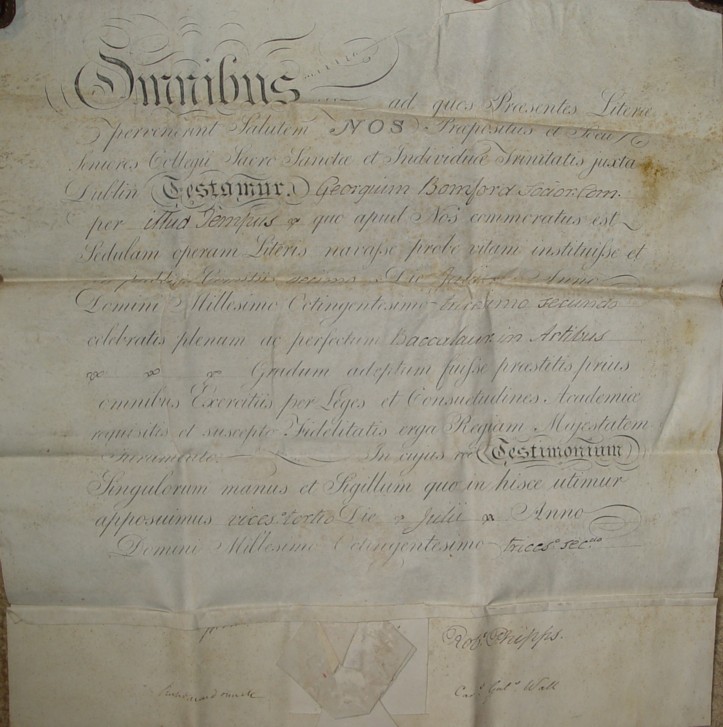 Omnibus ad quos Præsentes Literæ
pervenerint Salutem NOS Præpositus et Socii
Seniores Collegii Sacro Sanctæ et Individuæ Trinitatis juxta
Dublin Testamur Georgium Bomford
per illud Tempus quo apud Nos commoratus est
Sedulam operam Literis navasse probe vitam instituisse et
Die Anno
Domini Millesimo Octingentesimo secundo
celebratis plenum ac perfectum Baccalaur. in Artibus
Gradum adeptum fuisse præstitis prius
omnibus Exercitiis per Leges et Consuetudines Academiæ
requisitis et suscepto Fidelitatis erga Regiam Majestatem
Sacramento. In cujus rei Testimonium
Singulorum manus et Sigillum quo in hisce utimur
apposuimus Die Julii Anno
Domini Millesimo Octingentesimo trices.o sec.do
Rob.t Phipps.
Wall